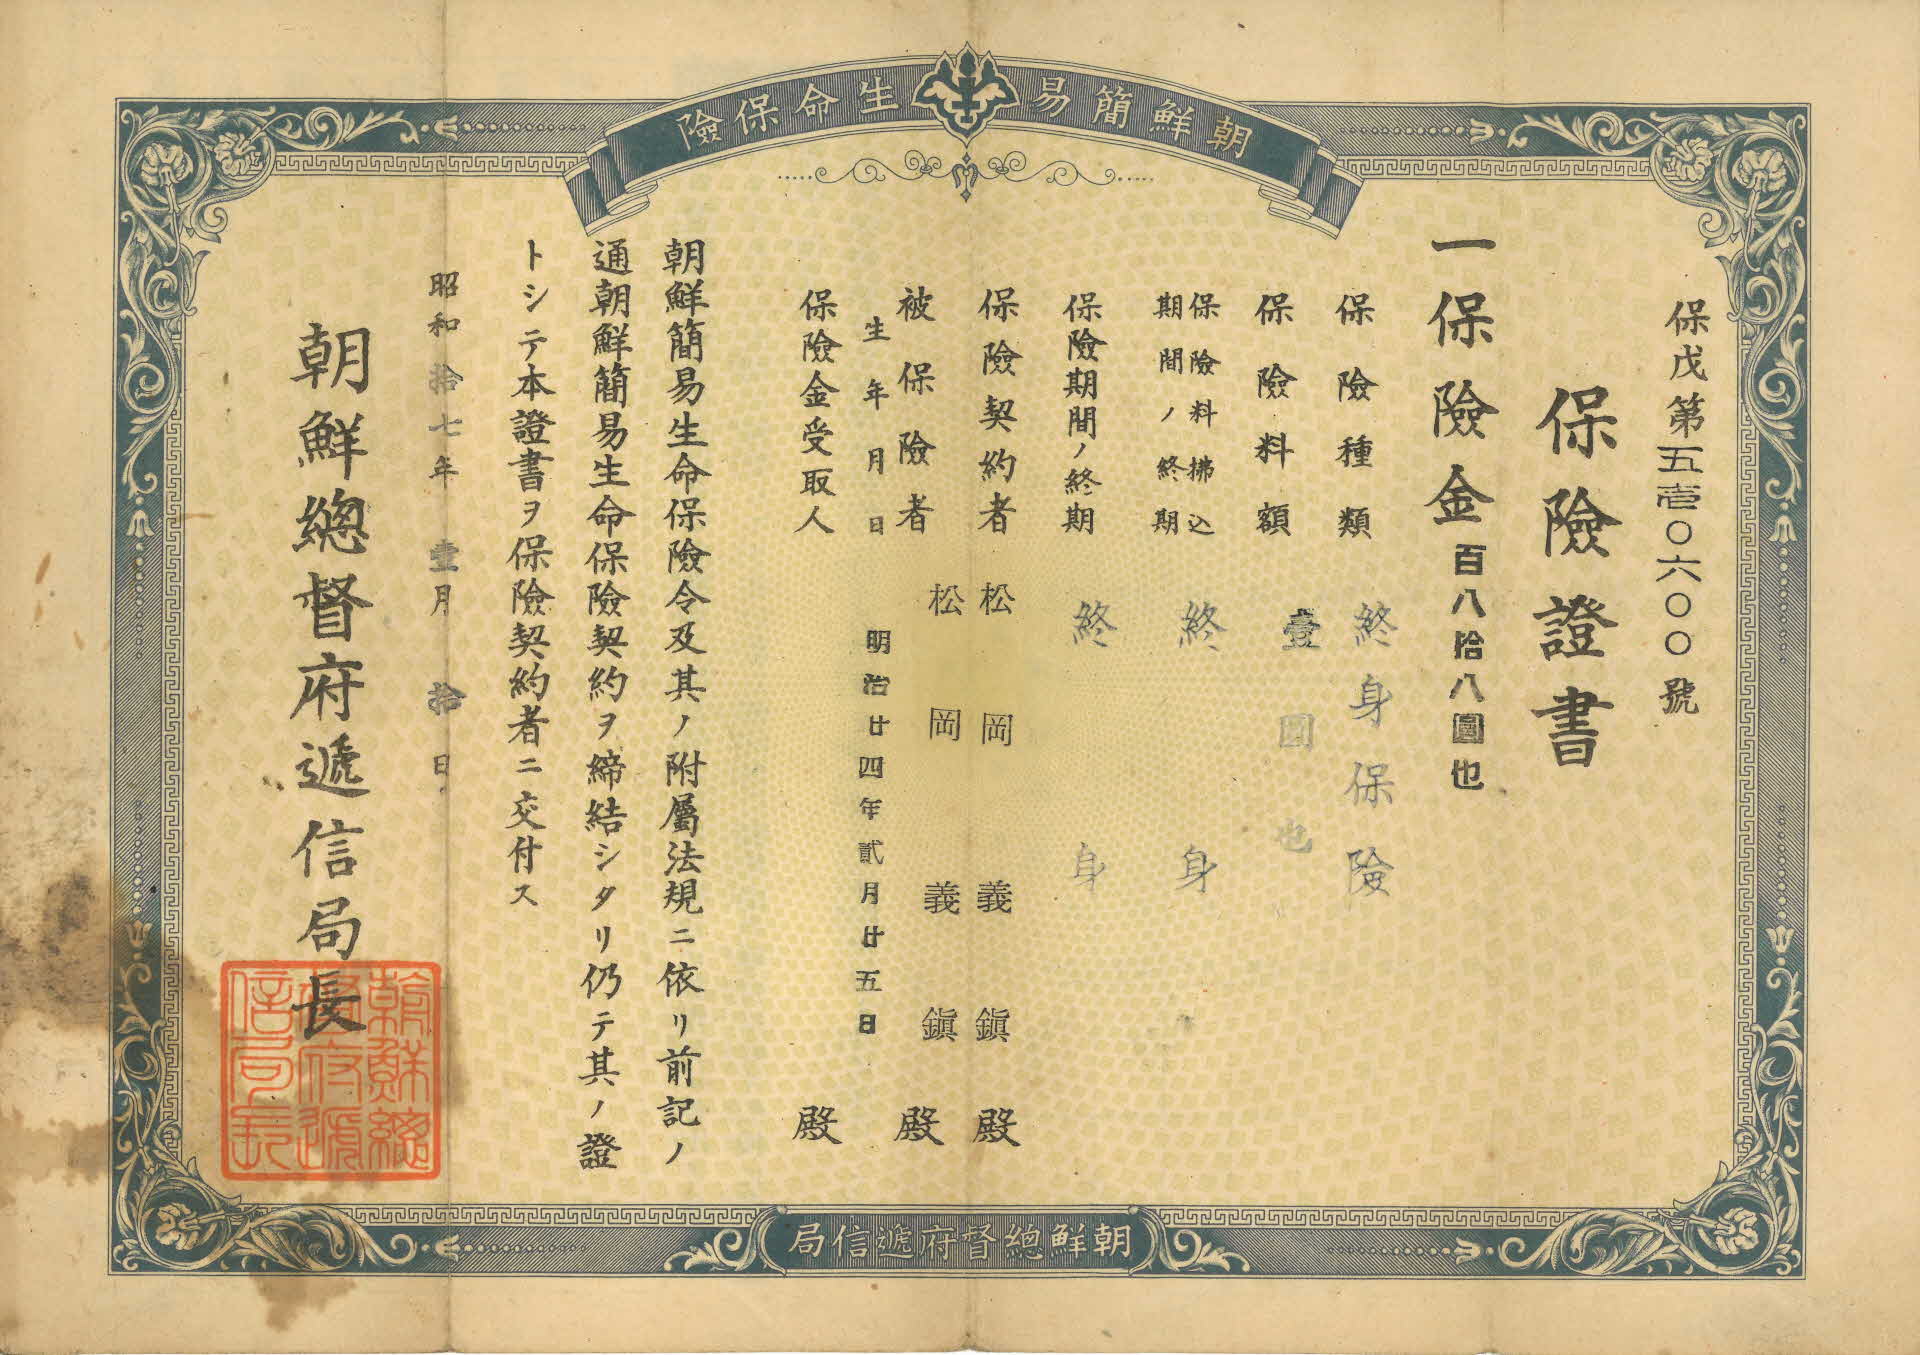 朝鮮簡易生命保險
保戊第五壱〇六〇〇號
保險證書
一保險金百八拾八圓也
保險種類 終身保險
保險料額 壹圓也
保險料拂込
期間ノ終期 終身
保險期間ノ終期 終身
保險契約者 松岡義鎭殿
被保險者 松岡義鎭殿
生年月日 明治廿四年貳月廿五日
保險金受取人 殿
朝鮮簡易生命保險令及其ノ附屬法規ニ依リ前記ノ
通朝鮮簡易生命保險契約ヲ締結シタリ仍テ其ノ證
トシテ本證書ヲ保險契約者ニ交付ス
昭和拾七年壹月拾日
朝鮮總督府遞信局長
朝鮮總督府遞信局長
朝鮮總督府遞信局